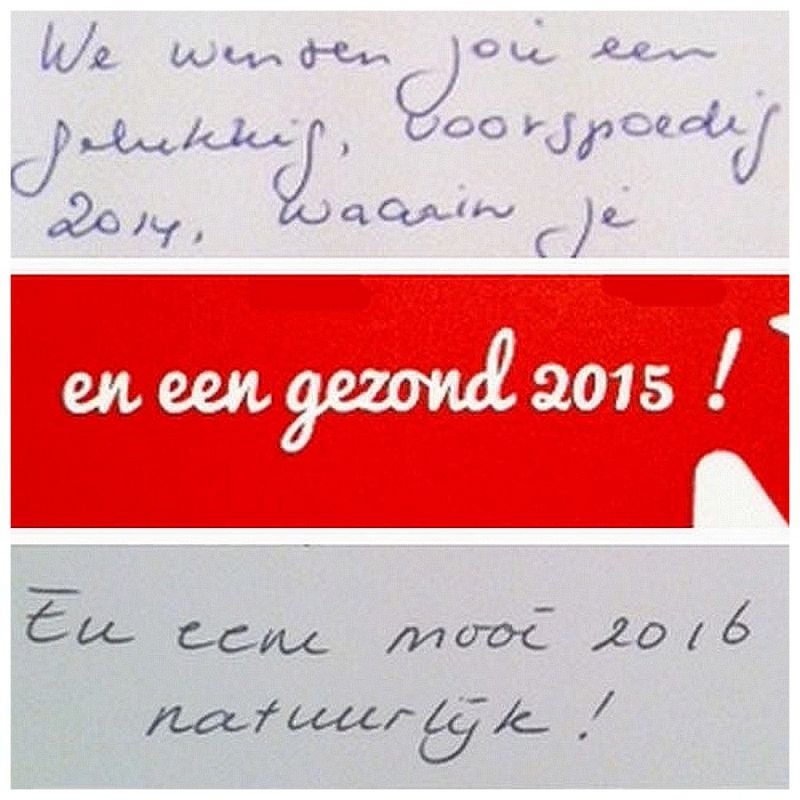 We wensen jou een
gelukkig, voorspoedig
2014, waarin je
en een gezond 2015 !
En een mooi 2016
natuurlijk !